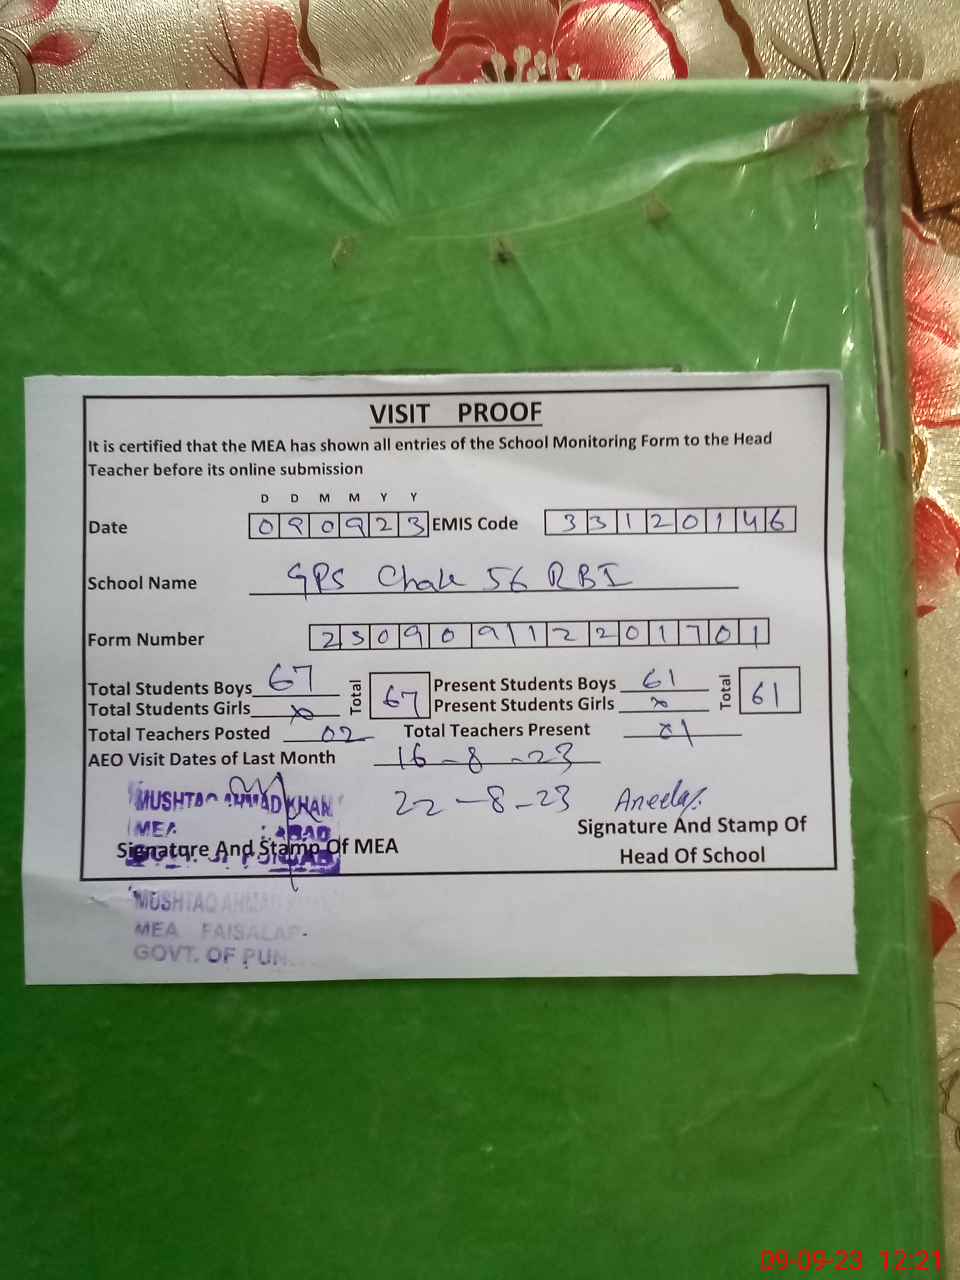 VISIT PROOF
It is certified that the MEA has shown all entries of the School Monitoring Form to the Head
Teacher before its online submission
D D M M Y Y
Date 0 9 0 9 2 3 EMIS Code 3 3 1 2 0 1 4 6
School Name GPS Chak 56 RBI
Form Number 2 3 0 9 0 9 1 1 2 2 0 1 7 0 1
Total Students Boys 67 Total 67 Present Students Boys 61 Total 61
Total Students Girls x Present Students Girls x
Total Teachers Posted 02 Total Teachers Present 01
AEO Visit Dates of Last Month 16-8-23
22-8-23 Aneela
MUSHTAQ AHMAD KHAN
MEA
Signature And Stamp Of MEA
Signature And Stamp Of
Head Of School
MUSHTAQ AHMAD
MEA FAISALAB
GOVT. OF PUN
09-09-23 12:21